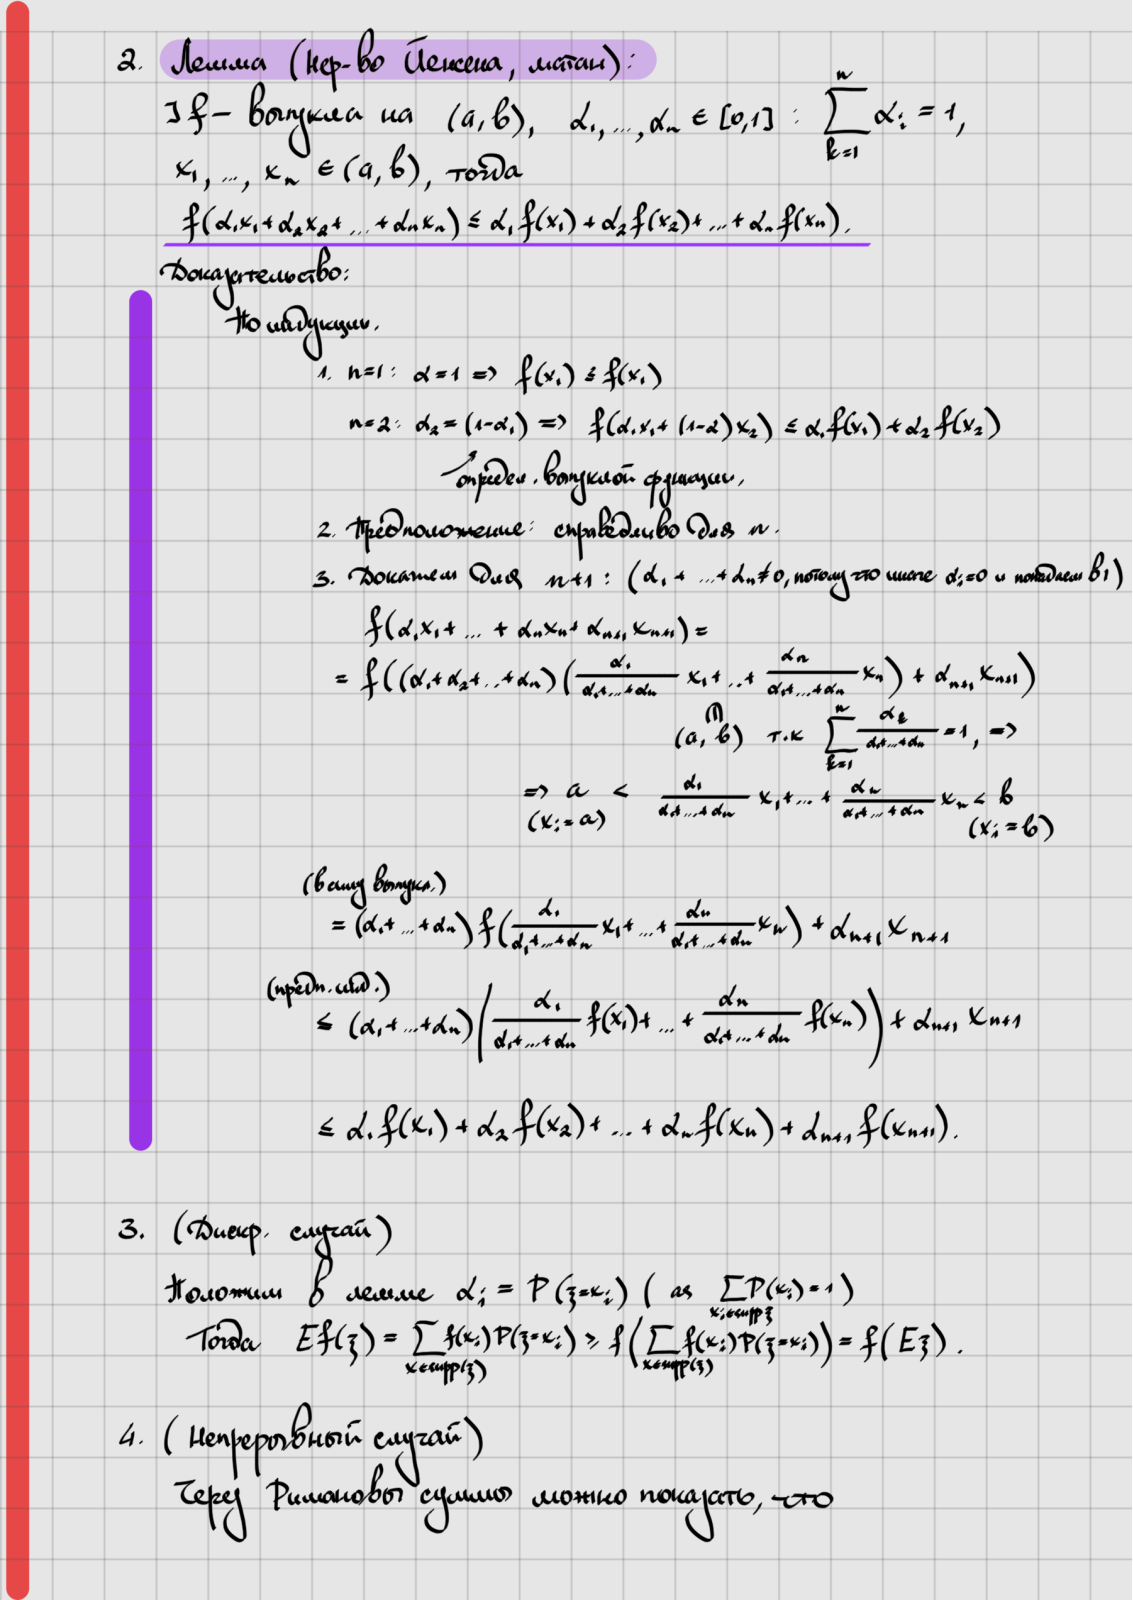 2. Лемма (Нер-во Йенсена, матан):
] f – выпукла на (a, b), α₁, ..., αₙ ∈ [0,1] : ∑_{k=1}^{n} αᵢ = 1,
x₁, ..., xₙ ∈ (a, b), тогда
f(α₁x₁+α₂x₂+ ... +αₙxₙ) ≤ α₁f(x₁) + α₂f(x₂)+ ... + αₙf(xₙ).
Доказательство:
По индукции.
1. n=1: α=1 => f(x₁) ≤ f(x₁)
n=2: α₂ = (1-α₁) => f(α₁x₁ + (1-α)x₂) ≤ α₁f(x₁) + α₂f(x₂)
↗ определ. выпуклой функции.
2. Предположение: справедливо для n.
3. Докажем для n+1 : (α₁+ ...+αₙ≠0, потому что иначе αᵢ=0 и попадаем в 1)
f(α₁x₁+ ... + αₙxₙ+ αₙ₊₁xₙ₊₁) =
= f((α₁+α₂+...+αₙ)(α₁/(α₁+...+αₙ) x₁+...+ αₙ/(α₁+...+αₙ) xₙ) + αₙ₊₁xₙ₊₁)
∩
(a, b) т.к ∑_{k=1}^{n} α_k/(α₁+...+αₙ) = 1, =>
=> a < α₁/(α₁+...+αₙ) x₁+...+ αₙ/(α₁+...+αₙ) xₙ < b
(xᵢ=a) (xᵢ=b)
(в силу выпукл.)
= (α₁+ ...+αₙ) f(α₁/(α₁+...+αₙ) x₁+...+ αₙ/(α₁+...+αₙ) xₙ) + αₙ₊₁xₙ₊₁
(предп. инд.)
≤ (α₁+ ...+αₙ)(α₁/(α₁+...+αₙ) f(x₁)+ ... + αₙ/(α₁+...+αₙ) f(xₙ)) + αₙ₊₁ xₙ₊₁
≤ α₁f(x₁) + α₂f(x₂)+ ... + αₙf(xₙ) + αₙ₊₁f(xₙ₊₁).
3. (Дискр. случай)
Положим в лемме αᵢ = P(ξ=xᵢ) ( as ∑_{xᵢ∈supp ξ} P(xᵢ)=1)
Тогда Ef(ξ) = ∑_{x∈supp(ξ)} f(xᵢ)P(ξ=xᵢ) ≥ f(∑_{x∈supp(ξ)} f(xᵢ)P(ξ=xᵢ)) = f(Eξ).
4. (Непрерывный случай)
Через Римановы суммы можно показать, что